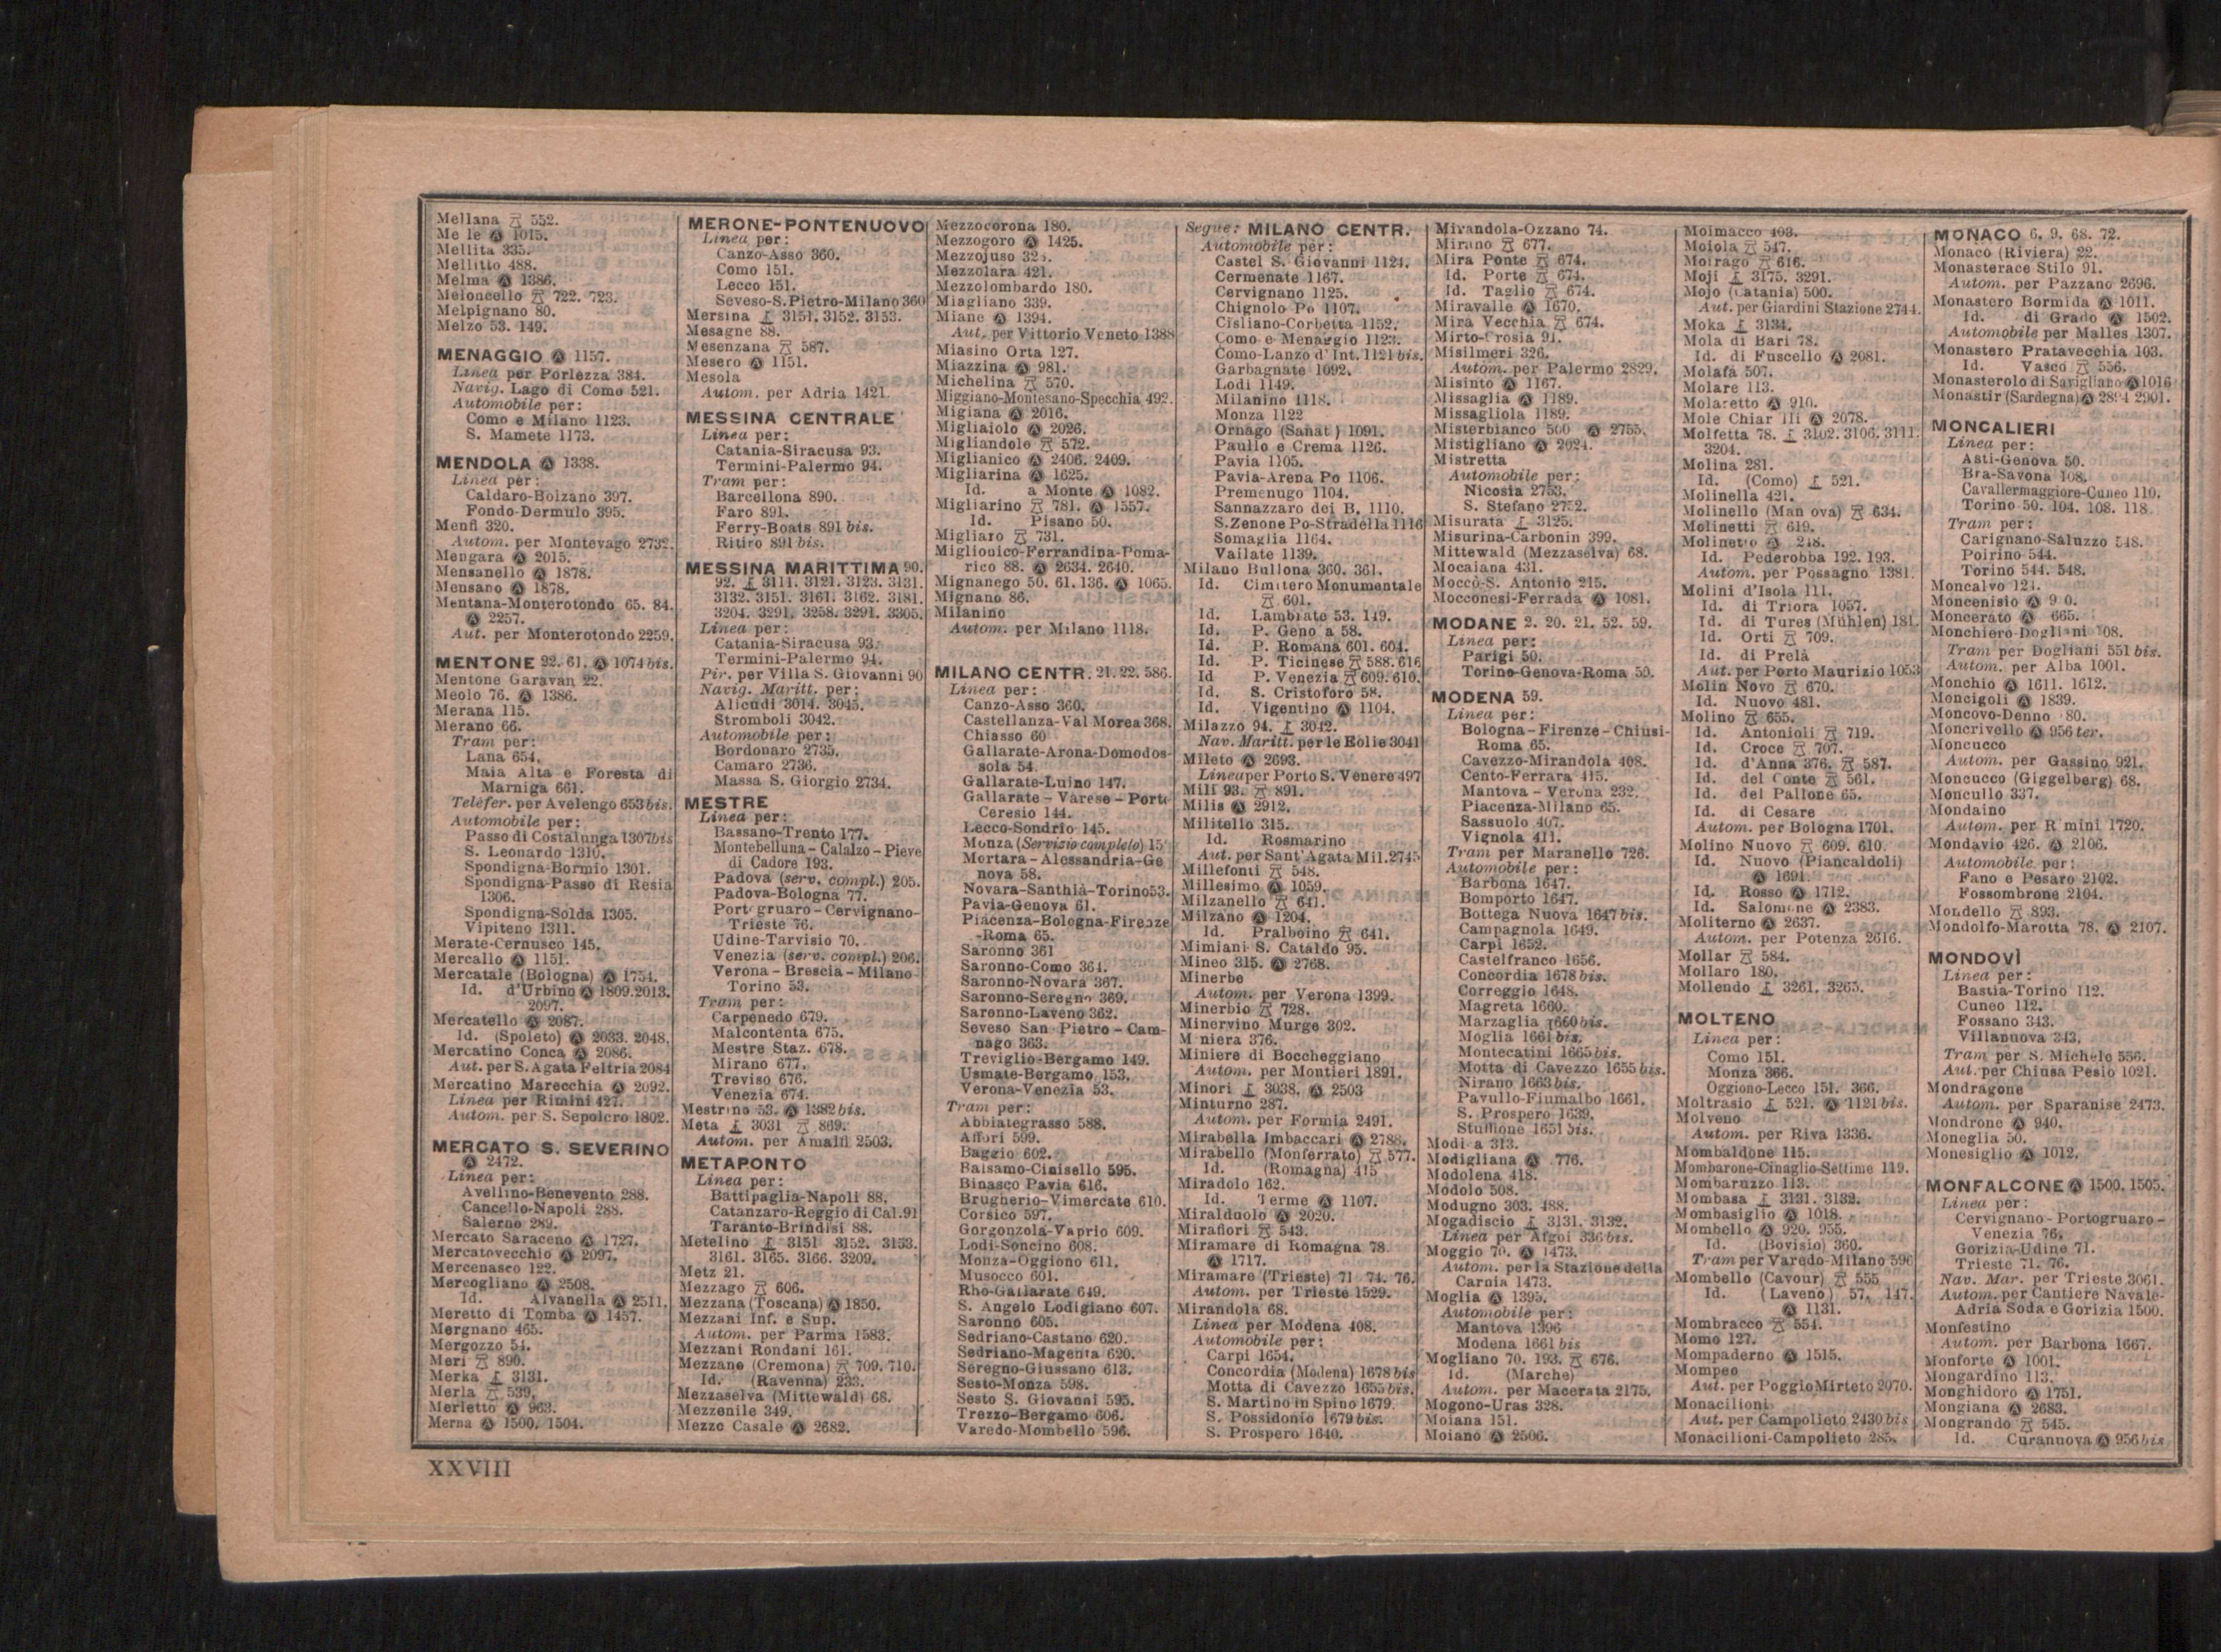 Mellana 552.
Me le Ⓐ 1015.
Mellita 335.
Mellitto 488.
Melma Ⓐ 1386.
Meloncello 722. 723.
Melpignano 80.
Melzo 53. 149.
MENAGGIO Ⓐ 1157.
Linea per Porlezza 384.
Navig. Lago di Como 521.
Automobile per:
Como e Milano 1123.
S. Mamete 1173.
MENDOLA Ⓐ 1338.
Linea per:
Caldaro-Bolzano 397.
Fondo-Dermulo 395.
Menfi 320.
Autom. per Montevago 2732.
Mengara Ⓐ 2015.
Mensanello Ⓐ 1878.
Mensano Ⓐ 1878.
Mentana-Monterotondo 65. 84.
Ⓐ 2257.
Aut. per Monterotondo 2259.
MENTONE 22. 61. Ⓐ 1074 bis.
Mentone Garavan 22.
Meolo 76. Ⓐ 1386.
Merana 115.
Merano 66.
Tram per:
Lana 654.
Maia Alta e Foresta di
Marniga 661.
Telefer. per Avelengo 653 bis.
Automobile per:
Passo di Costalunga 1307 bis
S. Leonardo 1310.
Spondigna-Bormio 1301.
Spondigna-Passo di Resia
1306.
Spondigna-Solda 1305.
Vipiteno 1311.
Merate-Cernusco 145.
Mercallo Ⓐ 1151.
Mercatale (Bologna) Ⓐ 1754.
Id. d'Urbino Ⓐ 1809. 2013.
2097.
Mercatello Ⓐ 2087.
Id. (Spoleto) Ⓐ 2033. 2048.
Mercatino Conca Ⓐ 2086.
Aut. per S. Agata Feltria 2084
Mercatino Marecchia Ⓐ 2092.
Linea per Rimini 427.
Autom. per S. Sepolcro 1802.
MERCATO S. SEVERINO
Ⓐ 2472.
Linea per:
Avellino-Benevento 288.
Cancello-Napoli 288.
Salerno 289.
Mercato Saraceno Ⓐ 1727.
Mercatovecchio Ⓐ 2097.
Mercenasco 122.
Mercogliano Ⓐ 2508.
Id. Alvanella Ⓐ 2511.
Meretto di Tomba Ⓐ 1457.
Mergnano 465.
Mergozzo 54.
Meri 890.
Merka 3131.
Merla 539.
Merletto Ⓐ 963.
Merna Ⓐ 1500. 1504.
MERONE-PONTENUOVO
Linea per:
Canzo-Asso 360.
Como 151.
Lecco 151.
Seveso-S. Pietro-Milano 360
Mersina 3151. 3152. 3153.
Mesagne 88.
Mesenzana 587.
Mesero Ⓐ 1151.
Mesola
Autom. per Adria 1421.
MESSINA CENTRALE
Linea per:
Catania-Siracusa 93.
Termini-Palermo 94.
Tram per:
Barcellona 890.
Faro 891.
Ferry-Boats 891 bis.
Ritiro 891 bis.
MESSINA MARITTIMA 90.
92. 3111. 3121. 3123. 3131.
3132. 3151. 3161. 3162. 3181.
3204. 3291. 3258. 3291. 3305.
Linea per:
Catania-Siracusa 93.
Termini-Palermo 94.
Pir. per Villa S. Giovanni 90
Navig. Maritt. per:
Alicudi 3014. 3045.
Stromboli 3042.
Automobile per:
Bordonaro 2735.
Camaro 2736.
Massa S. Giorgio 2734.
MESTRE
Linea per:
Bassano-Trento 177.
Montebelluna-Calalzo-Pieve
di Cadore 193.
Padova (serv. compl.) 205.
Padova-Bologna 77.
Port gruaro-Cervignano-
Trieste 76.
Udine-Tarvisio 70.
Venezia (serv. compl.) 206.
Verona-Brescia-Milano-
Torino 53.
Tram per:
Carpenedo 679.
Malcontenta 675.
Mestre Staz. 678.
Mirano 677.
Treviso 676.
Venezia 674.
Mestrino 53. Ⓐ 1382 bis.
Meta 3031 869.
Autom. per Amalfi 2503.
METAPONTO
Linea per:
Battipaglia-Napoli 88.
Catanzaro-Reggio di Cal. 91
Taranto-Brindisi 88.
Metelino 3151 3152. 3153.
3161. 3165. 3166. 3209.
Metz 21.
Mezzago 606.
Mezzana (Toscana) Ⓐ 1850.
Mezzani Inf. e Sup.
Autom. per Parma 1583.
Mezzani Rondani 161.
Mezzano (Cremona) 709. 710.
Id. (Ravenna) 233.
Mezzaselva (Mittewald) 68.
Mezzenile 349.
Mezzo Casale Ⓐ 2682.
Mezzocorona 180.
Mezzogoro Ⓐ 1425.
Mezzojuso
Mezzolara 421.
Mezzolombardo 180.
Miagliano 339.
Miane Ⓐ 1394.
Aut. per Vittorio Veneto 1388
Miasino Orta 127.
Miazzina Ⓐ 981.
Michelina 570.
Miggiano-Montesano-Specchia 492.
Migiana Ⓐ 2016.
Migliaiolo Ⓐ 2026.
Migliandolo 572.
Miglianico Ⓐ 2406. 2409.
Migliarina Ⓐ 1625.
Id. a Monte Ⓐ 1082.
Migliarino 781. Ⓐ 1557.
Id. Pisano 50.
Migliaro 731.
Miglionico-Ferrandina-Poma-
rico 88. Ⓐ 2634. 2640.
Mignanego 50. 61. 136. Ⓐ 1065.
Mignano 86.
Milanino
Autom. per Milano 1118.
MILANO CENTR. 21. 22. 586.
Linea per:
Canzo-Asso 360.
Castellanza-Val Morea 368.
Chiasso 60
Gallarate-Arona-Domodos-
sola 54.
Gallarate-Luino 147.
Gallarate-Varese-Porto
Ceresio 144.
Lecco-Sondrio 145.
Monza (Servizio completo) 15
Mortara-Alessandria-Ge
nova 58.
Novara-Santhià-Torino 53.
Pavia-Genova 61.
Piacenza-Bologna-Firenze
-Roma 65.
Saronno 361
Saronno-Como 364.
Saronno-Novara 367.
Saronno-Seregno 369.
Saronno-Laveno 362.
Seveso San Pietro-Cam-
nago 363.
Treviglio-Bergamo 149.
Usmate-Bergamo 153.
Verona-Venezia 53.
Tram per:
Abbiategrasso 588.
Affori 599.
Baggio 602.
Balsamo-Cinisello 595.
Binasco Pavia 616.
Brugherio-Vimercate 610.
Corsico 597.
Gorgonzola-Vaprio 609.
Lodi-Soncino 608.
Monza-Oggiono 611.
Musocco 601.
Rho-Gallarate 649.
S. Angelo Lodigiano 607.
Saronno 605.
Sedriano-Castano 620.
Sedriano-Magenta 620.
Seregno-Giussano 613.
Sesto-Monza 598.
Sesto S. Giovanni 595.
Trezzo-Bergamo 606.
Varedo-Mombello 596.
Segue: MILANO CENTR.
Automobile per:
Castel S. Giovanni 1124.
Cermenate 1167.
Cervignano 1125.
Chignolo Po 1107.
Cisliano-Corbetta 1152.
Como e Menaggio 1123.
Como-Lanzo d'Int. 1121 bis.
Garbagnate 1092.
Lodi 1149.
Milanino 1118.
Monza 1122
Ornago (Sanat ) 1091.
Paullo e Crema 1126.
Pavia 1105.
Pavia-Arena Po 1106.
Premenugo 1104.
Sannazzaro dei B. 1110.
S. Zenone Po-Stradella 1116
Somaglia 1164.
Vailate 1139.
Milano Bullona 360. 361.
Id. Cimitero Monumentale
601.
Id. Lambrate 53. 149.
Id. P. Geno a 58.
Id. P. Romana 601. 604.
Id. P. Ticinese 588. 616
Id P. Venezia 609. 610.
Id. S. Cristoforo 58.
Id. Vigentino Ⓐ 1104.
Milazzo 94. 3042.
Nav. Maritt. per le Eolie 3041
Mileto Ⓐ 2693.
Linea per Porto S. Venere 497
Mili 93. 891.
Milis Ⓐ 2912.
Militello 315.
Id. Rosmarino
Aut. per Sant'Agata Mil. 2745
Millefonti 548.
Millesimo Ⓐ 1059.
Milzanello 641.
Milzano Ⓐ 1204.
Id. Pralboino 641.
Mimiani S. Cataldo 95.
Mineo 315. Ⓐ 2768.
Minerbe
Autom. per Verona 1399.
Minerbio 728.
Minervino Murge 302.
M niera 376.
Miniere di Boccheggiano
Autom. per Montieri 1891.
Minori 3038. Ⓐ 2503
Minturno 287.
Autom. per Formia 2491.
Mirabella Imbaccari Ⓐ 2788.
Mirabello (Monferrato) 577.
Id. (Romagna) 415
Miradolo 162.
Id. Terme Ⓐ 1107.
Miralduolo Ⓐ 2020.
Miraflori 543.
Miramare di Romagna 78.
Ⓐ 1717.
Miramare (Trieste) 71 74. 76.
Autom. per Trieste 1529.
Mirandola 68.
Linea per Modena 408.
Automobile per:
Carpi 1654.
Concordia (Modena) 1678 bis
Motta di Cavezzo 1655 bis.
S. Martino in Spino 1679.
S. Possidonio 1679 bis.
S. Prospero 1640.
Mirandola-Ozzano 74.
Mirano 677.
Mira Ponte 674.
Id. Porte 674.
Id. Taglio 674.
Miravalle Ⓐ 1670.
Mira Vecchia 674.
Mirto-Crosia 91.
Misilmeri 326.
Autom. per Palermo 2829.
Misinto Ⓐ 1167.
Missaglia Ⓐ 1189.
Missagliola 1189.
Misterbianco 500 Ⓐ 2755.
Mistigliano Ⓐ 2024.
Mistretta
Automobile per:
Nicosia 2753.
S. Stefano 2752.
Misurata 3125.
Misurina-Carbonin 399.
Mittewald (Mezzaselva) 68.
Mocaiana 431.
Moccò-S. Antonio 215.
Mocconesi-Ferrada Ⓐ 1081.
MODANE 2. 20. 21. 52. 59.
Linea per:
Parigi 50.
Torino-Genova-Roma 50.
MODENA 59.
Linea per:
Bologna-Firenze-Chiusi-
Roma 65.
Cavezzo-Mirandola 408.
Cento-Ferrara 415.
Mantova-Verona 232.
Piacenza-Milano 65.
Sassuolo 407.
Vignola 411.
Tram per Maranello 726.
Automobile per:
Barbona 1647.
Bomporto 1647.
Bottega Nuova 1647 bis.
Campagnola 1649.
Carpi 1652.
Castelfranco 1656.
Concordia 1678 bis.
Correggio 1648.
Magreta 1660.
Marzaglia 1660 bis.
Moglia 1661 bis.
Montecatini 1665 bis.
Motta di Cavezzo 1655 bis.
Nirano 1663 bis.
Pavullo-Fiumalbo 1661.
S. Prospero 1639.
Stuffione 1651 bis.
Modi a 313.
Modigliana Ⓐ 776.
Modolena 418.
Modolo 508.
Modugno 303. 488.
Mogadiscio 3131. 3132.
Linea per Afgoi 336 bis.
Moggio 70. Ⓐ 1473.
Autom. per la Stazione della
Carnia 1473.
Moglia Ⓐ 1395.
Automobile per:
Mantova 1396
Modena 1661 bis
Mogliano 70. 193. 676.
Id. (Marche)
Autom. per Macerata 2175.
Mogono-Uras 328.
Moiana 151.
Moiano Ⓐ 2506.
Moimacco 403.
Moiola 547.
Moirago 616.
Moji 3175. 3291.
Mojo (Catania) 500.
Aut. per Giardini Stazione 2744.
Moka 3134.
Mola di Bari 78.
Id. di Fuscello Ⓐ 2081.
Molafà 507.
Molare 113.
Molaretto Ⓐ 910.
Mole Chiar lli Ⓐ 2078.
Molfetta 78. 3102. 3106. 3111.
3204.
Molina 281.
Id. (Como) 521.
Molinella 421.
Molinello (Man ova) 634.
Molinetti 619.
Molinetto Ⓐ 248.
Id. Pederobba 192. 193.
Autom. per Possagno 1381.
Molini d'Isola 111.
Id. di Triora 1057.
Id. di Tures (Mühlen) 181.
Id. Orti 709.
Id. di Prelà
Aut. per Porto Maurizio 1053
Molin Novo 670.
Id. Nuovo 481.
Molino 655.
Id. Antonioli 719.
Id. Croce 707.
Id. d'Anna 376. 587.
Id. del Conte 561.
Id. del Pallone 65.
Id. di Cesare
Autom. per Bologna 1701.
Molino Nuovo 609. 610.
Id. Nuovo (Piancaldoli)
Ⓐ 1691.
Id. Rosso Ⓐ 1712.
Id. Salomone Ⓐ 2383.
Moliterno Ⓐ 2637.
Autom. per Potenza 2616.
Mollar 584.
Mollaro 180.
Mollendo 3261. 3265.
MOLTENO
Linea per:
Como 151.
Monza 366.
Oggiono-Lecco 151. 366.
Moltrasio 521. Ⓐ 1121 bis.
Molveno
Autom. per Riva 1336.
Mombaldone 115.
Mombarone-Cinaglio-Settime 119.
Mombaruzzo 113.
Mombasa 3131. 3132.
Mombasiglio Ⓐ 1018.
Mombello Ⓐ 920. 955.
Id. (Bovisio) 360.
Tram per Varedo-Milano 596
Mombello (Cavour) 555
Id. (Laveno) 57. 147.
Ⓐ 1131.
Mombracco 554.
Momo 127.
Mompaderno Ⓐ 1515.
Mompeo
Aut. per Poggio Mirteto 2070.
Monacilioni
Aut. per Campolieto 2430 bis
Monacilioni-Campolieto 285.
MONACO 6. 9. 68. 72.
Monaco (Riviera) 22.
Monasterace Stilo 91.
Autom. per Pazzano 2696.
Monastero Bormida Ⓐ 1011.
Id. di Grado Ⓐ 1502.
Automobile per Malles 1307.
Monastero Pratavecchia 103.
Id. Vasco 556.
Monasterolo di Savigliano Ⓐ 1016
Monastir (Sardegna) Ⓐ 2894 2901.
MONCALIERI
Linea per:
Asti-Genova 50.
Bra-Savona 108.
Cavallermaggiore-Cuneo 110.
Torino 50. 104. 108. 118
Tram per:
Carignano-Saluzzo 548.
Poirino 544.
Torino 544. 548.
Moncalvo 124.
Moncenisio Ⓐ 9 0.
Moncerato Ⓐ 665.
Monchiero-Dogliani 08.
Tram per Dogliani 551 bis.
Autom. per Alba 1001.
Monchio Ⓐ 1611. 1612.
Moncigoli Ⓐ 1839.
Moncovo-Denno 80.
Moncrivello Ⓐ 956 ter.
Moncucco
Autom. per Gassino 921.
Moncucco (Giggelberg) 68.
Moncullo 337.
Mondaino
Autom. per R mini 1720.
Mondavio 426. Ⓐ 2106.
Automobile per:
Fano e Pesaro 2102.
Fossombrone 2104.
Mondello 893.
Mondolfo-Marotta 78. Ⓐ 2107.
MONDOVÌ
Linea per:
Bastia-Torino 112.
Cuneo 112.
Fossano 343.
Villanuova 343.
Tram per S. Michele 556.
Aut. per Chiusa Pesio 1021.
Mondragone
Autom. per Sparanise 2473.
Mondrone Ⓐ 940.
Moneglia 50.
Monesiglio Ⓐ 1012.
MONFALCONE Ⓐ 1500. 1505.
Linea per:
Cervignano-Portogruaro-
Venezia 76.
Gorizia-Udine 71.
Trieste 71. 76.
Nav. Mar. per Trieste 3061.
Autom. per Cantiere Navale-
Adria Soda e Gorizia 1500.
Monfestino
Autom. per Barbona 1667.
Monforte Ⓐ 1001.
Mongardino 113.
Monghidoro Ⓐ 1751.
Mongiana Ⓐ 2683.
Mongrando 545.
Id. Curanuova Ⓐ 956 bis
XXVIII